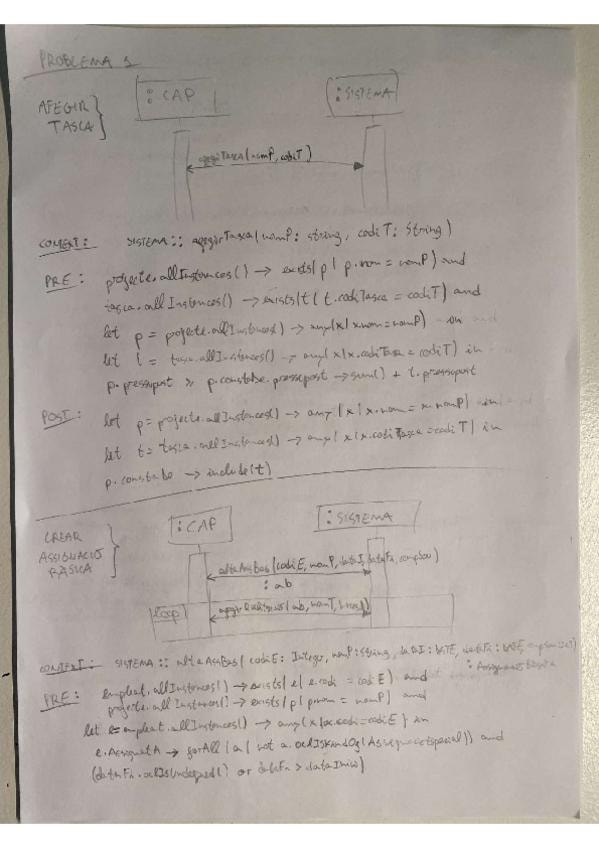 PROBLEMA 1
: CAP
: SISTEMA
AFEGIR
TASCA
afegirTasca(nomP, codiT)
CONTEXT: SISTEMA :: afegirTasca(nomP: string, codiT: String)
PRE: projecte.allInstances() -> exists(p | p.nom = nomP) and
tasca.allInstances() -> exists(t | t.codiTasca = codiT) and
let p = projecte.allInstances() -> any(x | x.nom = nomP) in
let t = tasca.allInstances() -> any(x | x.codiTasca = codiT) in
p.pressupost >= p.constaDe.pressupost -> sum() + t.pressupost
POST: let p = projecte.allInstances() -> any(x | x.nom = x.nomP) in
let t = tasca.allInstances() -> any(x | x.codiTasca = codiT) in
p.constaDe -> include(t)
CREAR
ASSIGNACIÓ
BÀSICA
: CAP
: SISTEMA
altaAssBas(codiE, nomP, dataI, dataFi,
: ab
loop
(ab, nomT,
CONTEXT: SISTEMA :: altaAssBas(codiE: Integer, nomP: String, dataI: DATE, dataFi: DATE,
PRE: Empleat.allInstances() -> exists(e | e.codi = codiE) and
projecte.allInstances() -> exists(p | p.nom = nomP) and
let e = empleat.allInstances() -> any(x | x.codi = codiE) in
e.AssignatA -> forAll(a | not a.oclIsKindOf(AssignacioEspecial)) and
(dataFi.oclIsUndefined() or dataFi > dataInici)